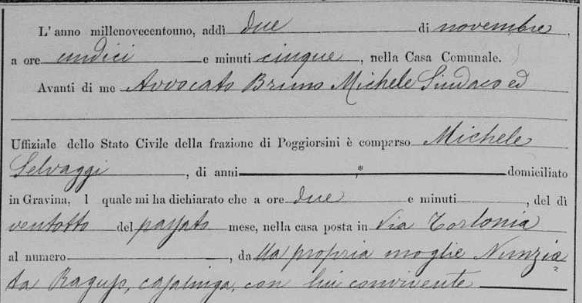 L' anno millenovecentouno, addì due di novembre,
a ore undici e minuti cinque, nella Casa Comunale.
Avanti di me Avvocato Bruno Michele Sindaco ed
Uffiziale dello Stato Civile della frazione di Poggiorsini è comparso Michele
Selvaggi, di anni domiciliato
in Gravina, l quale mi ha dichiarato che a ore due e minuti , del dì
ventotto del passato mese, nella casa posta in Via Torlonia
al numero , da lla propria moglie Nunzia-
ta Raguso, casalinga, con lui convivente